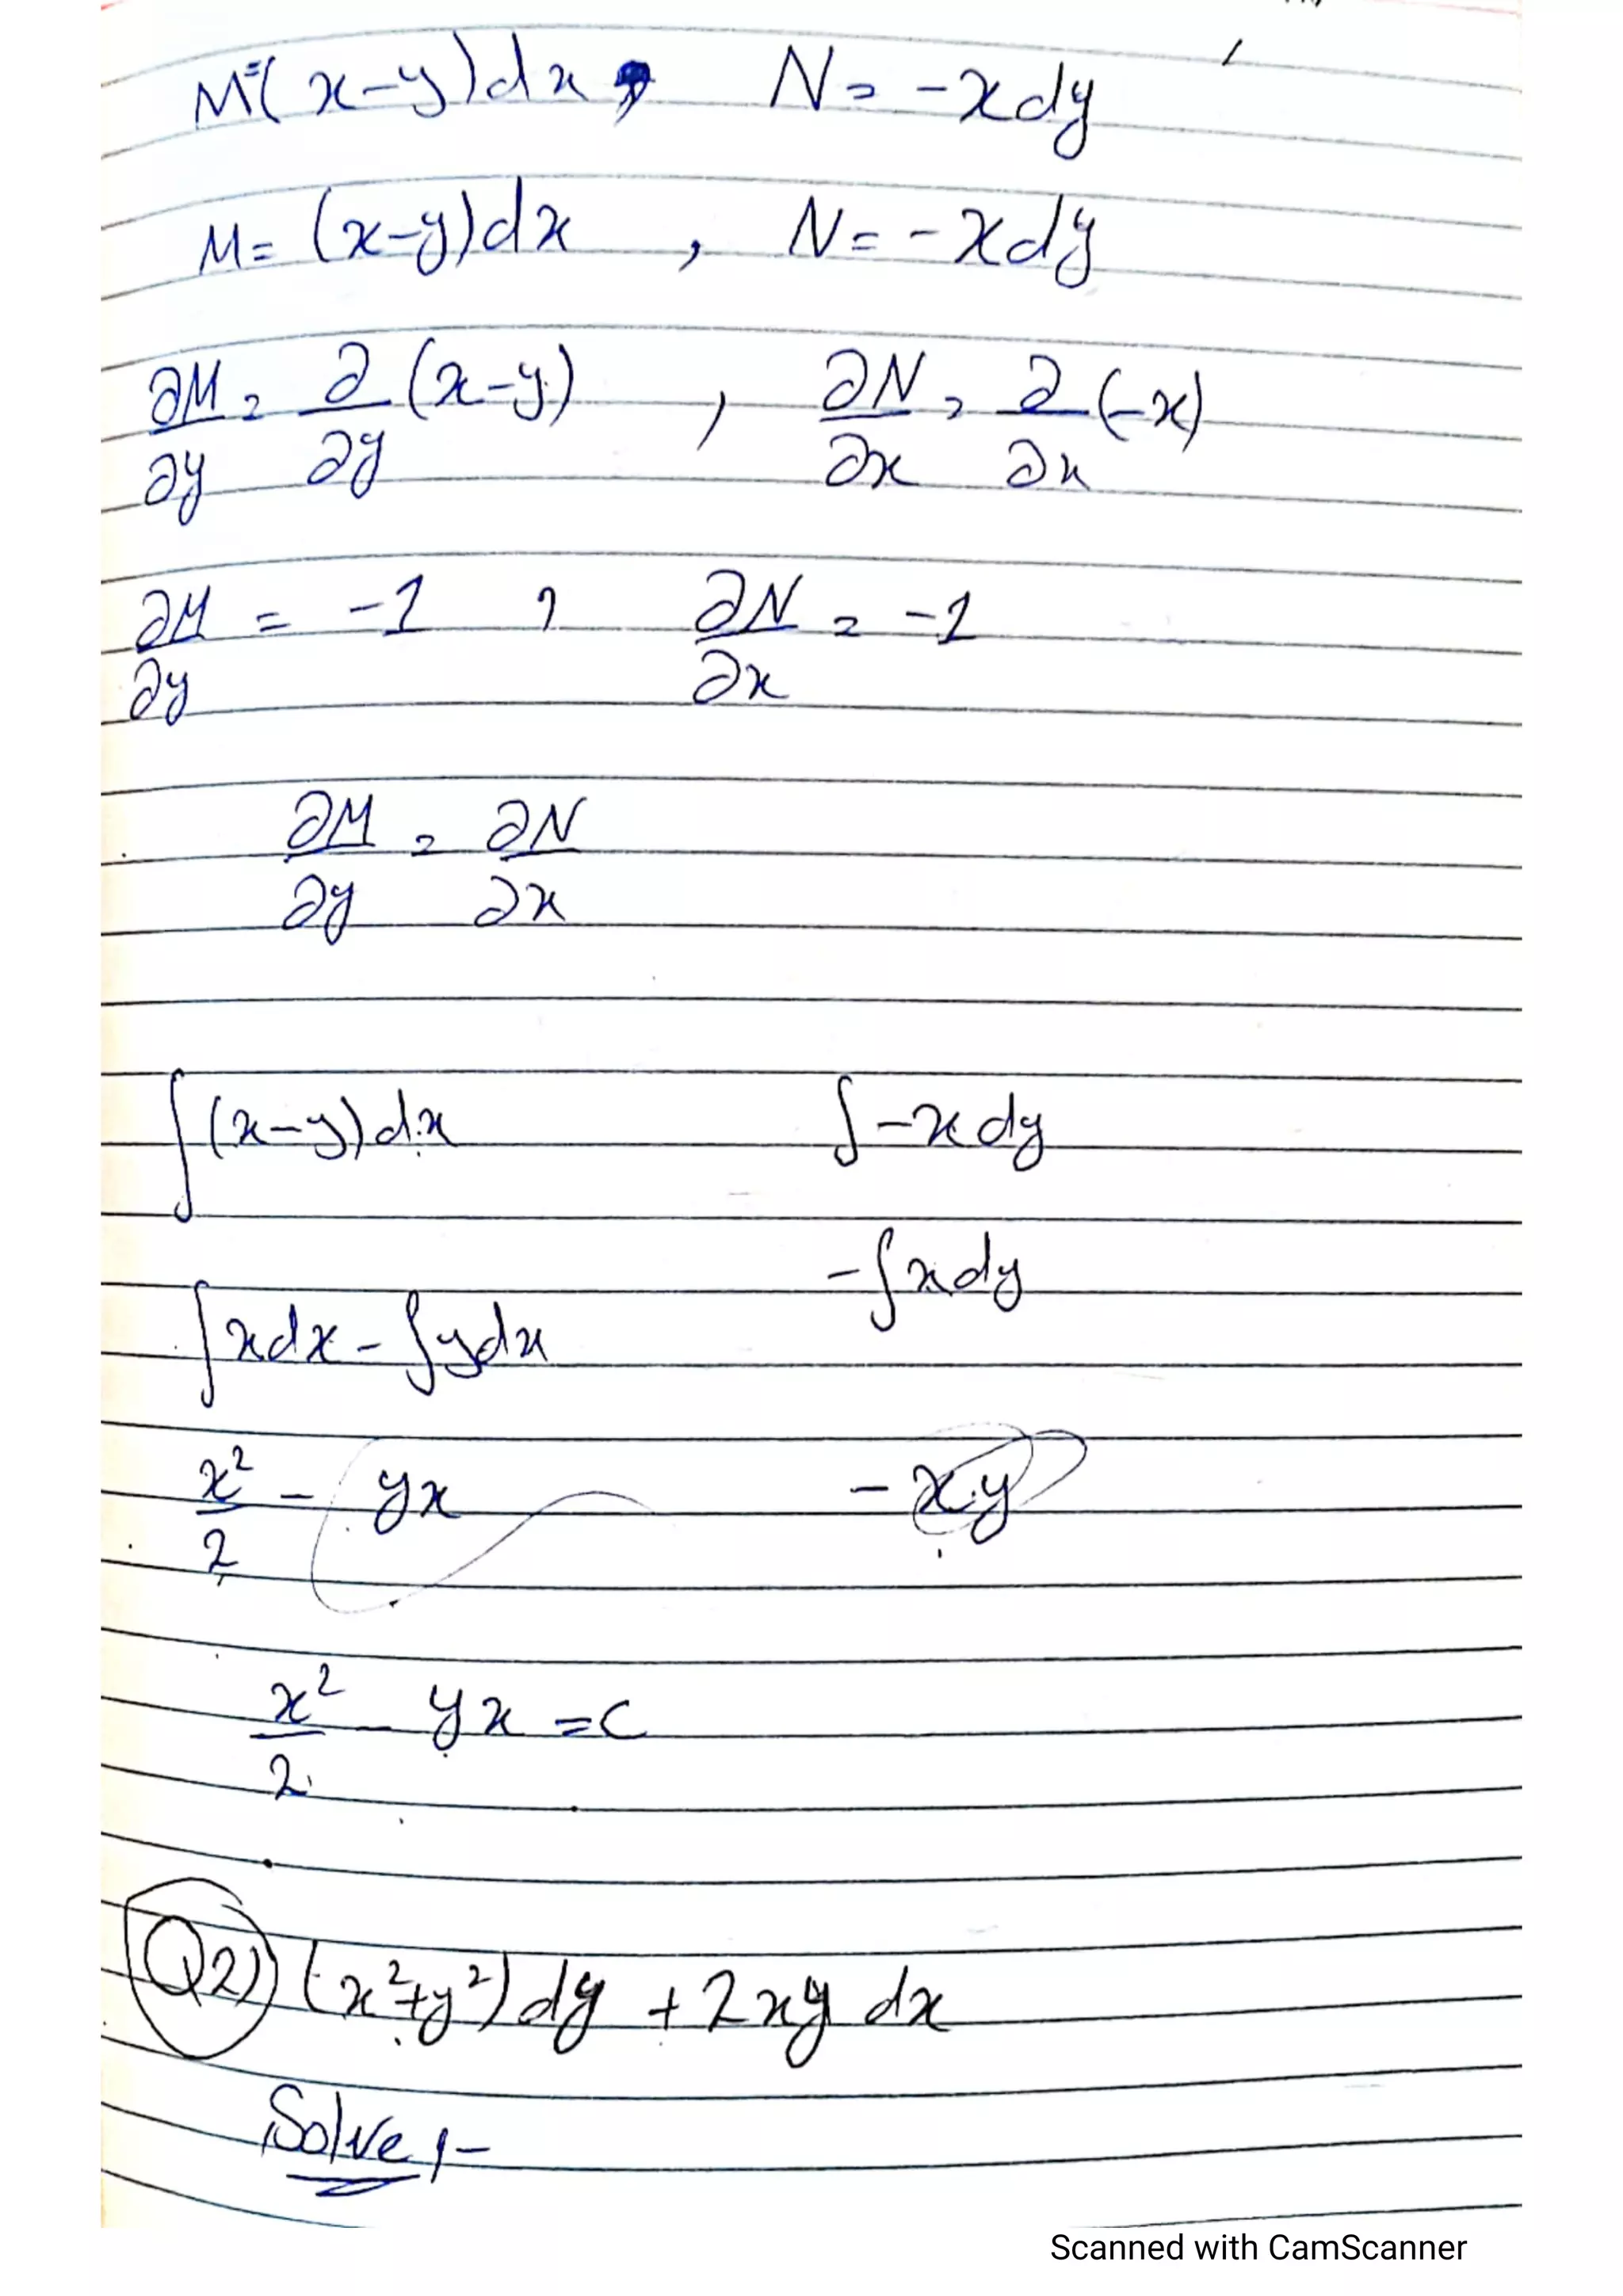 M=(x-y)dx, N= -xdy
M= (x-y)dx , N= -xdy
∂M/∂y = ∂/∂y (x-y) , ∂N/∂x = ∂/∂x (-x)
∂M/∂y = -1 , ∂N/∂x = -1
∂M/∂y = ∂N/∂x
∫(x-y)dx ∫-xdy
-∫xdy
∫xdx - ∫ydx
x²/2 - yx -xy
x²/2 - yx = c
Q2) (x²+y²)dy + 2xy dx
Solve:-
Scanned with CamScanner